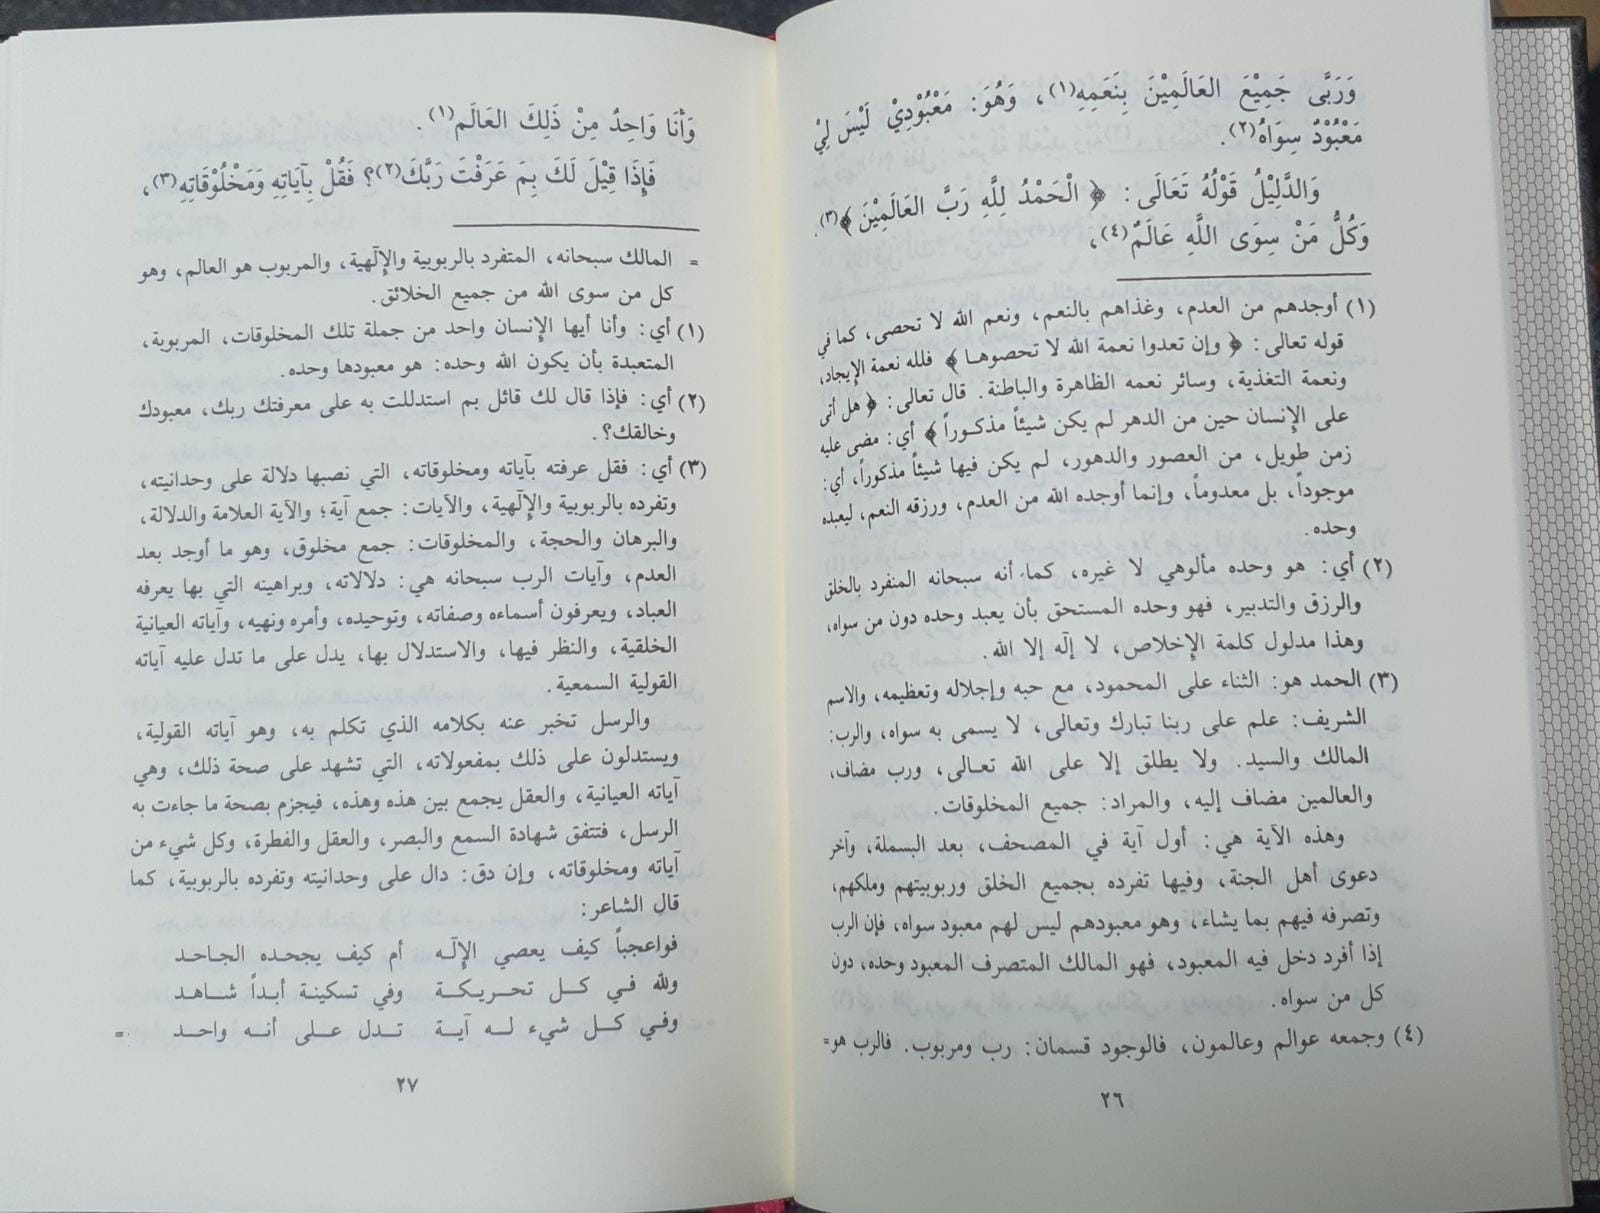 وَرَبَّى جَمِيْعَ العَالَمِيْنَ بِنَعَمِهِ(١)، وَهُوَ: مَعْبُوْدِيْ لَيْسَ لِيْ
مَعْبُوْدٌ سِوَاهُ(٢).
وَالدَّلِيْلُ قَوْلُهُ تَعَالَى: ﴿ الْحَمْدُ لِلَّهِ رَبَّ العَالَمِيْنَ ﴾(٣).
وَكُلُّ مَنْ سِوَى اللَّهِ عَالَمٌ(٤)،
(١) أوجدهم من العدم، وغذاهم بالنعم، ونعم الله لا تحصى، كما في
قوله تعالى: ﴿ وإن تعدوا نعمة الله لا تحصوهـا ﴾ فلله نعمة الإيجاد،
ونعمة التغذية، وسائر نعمه الظاهرة والباطنة. قال تعالى: ﴿ هل أتى
على الإنسان حين من الدهر لم يكن شيئاً مذكـوراً ﴾ أي: مضى عليه
زمن طويل، من العصور والدهور، لم يكن فيها شيئاً مذكوراً، أي:
موجوداً، بل معدوماً، وإنما أوجده الله من العدم، ورزقه النعم، ليعبده
وحده.
(٢) أي: هو وحده مألوهي لا غيره، كما أنه سبحانه المنفرد بالخلق
والرزق والتدبير، فهو وحده المستحق بأن يعبد وحده دون من سواه،
وهذا مدلول كلمة الإخلاص، لا إلٓه إلا الله.
(٣) الحمد هو: الثناء على المحمود، مع حبه وإجلاله وتعظيمه، والاسم
الشريف: علم على ربنا تبارك وتعالى، لا يسمى به سواه، والرب:
المالك والسيد. ولا يطلق إلا على الله تعـالى، ورب مضاف،
والعالمين مضاف إليه، والمراد: جميع المخلوقات.
وهذه الآية هي: أول آية في المصحف، بعد البسملة، وآخر
دعوى أهل الجنة، وفيها تفرده بجميع الخلق وربوبيتهم وملكهم،
وتصرفه فيهم بما يشاء، وهو معبودهم ليس لهم معبود سواه، فإن الرب
إذا أفرد دخل فيه المعبود، فهو المالك المتصرف المعبود وحده، دون
كل من سواه.
(٤) وجمعه عوالم وعالمون، فالوجود قسمان: رب ومربوب. فالرب هو=
٢٦
وَأَنَا وَاحِدٌ مِنْ ذَلِكَ العَالَم(١).
فَإِذَا قِيْلَ لَكَ بِمَ عَرَفْتَ رَبَّكَ(٢)؟ فَقُلْ بِآيَاتِهِ وَمَخْلُوْقَاتِهِ(٣)،
= المالك سبحانه، المتفرد بالربوبية والإلٓهية، والمربوب هو العالم، وهو
كل من سوى الله من جميع الخلائق.
(١) أي: وأنا أيها الإنسان واحد من جملة تلك المخلوقات، المربوبة،
المتعبدة بأن يكون الله وحده: هو معبودها وحده.
(٢) أي: فإذا قال لك قائل بم استدللت به على معرفتك ربك، معبودك
وخالقك؟.
(٣) أي: فقل عرفته بآياته ومخلوقاته، التي نصبها دلالة على وحدانيته،
وتفرده بالربوبية والإلٓهية، والآيات: جمع آية؛ والآية العلامة والدلالة،
والبرهان والحجة، والمخلوقات: جمع مخلوق، وهو ما أوجد بعد
العدم، وآيات الرب سبحانه هي: دلالاته، وبراهينه التي بها يعرفه
العباد، ويعرفون أسماءه وصفاته، وتوحيده، وأمره ونهيه، وآياته العيانية
الخلقية، والنظر فيها، والاستدلال بها، يدل على ما تدل عليه آياته
القولية السمعية.
والرسل تخبر عنه بكلامه الذي تكلم به، وهو آياته القولية،
ويستدلون على ذلك بمفعولاته، التي تشهد على صحة ذلك، وهي
آياته العيانية، والعقل يجمع بين هذه وهذه، فيجزم بصحة ما جاءت به
الرسل، فتتفق شهادة السمع والبصر، والعقل والفطرة، وكل شيء من
آياته ومخلوقاته، وإن دق: دال على وحدانيته وتفرده بالربوبية، كما
قال الشاعر:
فواعجباً كيف يعصي الإلٓـه أم كيف يجحده الجـاحـد
ولله فـي كـل تحـريـكـة وفي تسكينة أبـداً شـاهـد
وفـي كـل شـيء لـه آيـة تـدل عـلـى أنـه واحـد =
٢٧